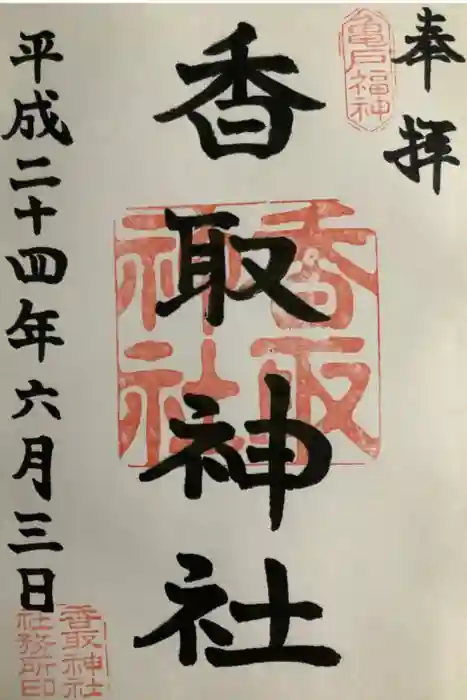 奉拝
亀戸福神
香取神社
香取
神社
平成二十四年六月三日
香取神社
社務所印